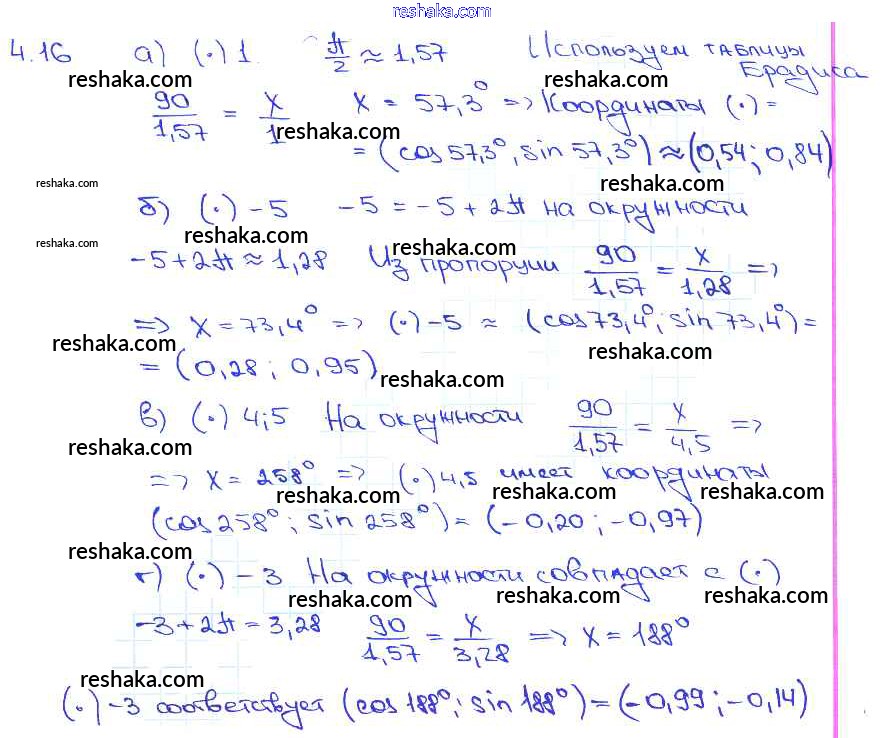 reshaka.com
4.16 а) (·) 1. π/2 ≈ 1,57 Используем таблицы
Брадиса
reshaka.com reshaka.com
90/1,57 = x/1 x = 57,3° => Координаты (·) =
reshaka.com reshaka.com
= (cos 57,3°, sin 57,3°) ≈ (0,54; 0,84)
reshaka.com reshaka.com
б) (·) -5 -5 = -5 + 2π на окружности
reshaka.com reshaka.com reshaka.com
-5 + 2π ≈ 1,28 Из пропорции 90/1,57 = x/1,28 =>
=> x = 73,4° => (·) -5 ≈ (cos 73,4°; sin 73,4°) =
reshaka.com reshaka.com
= (0,28; 0,95)
reshaka.com
в) (·) 4,5 На окружности 90/1,57 = x/4,5 =>
reshaka.com
=> x = 258° => (·) 4,5 имеет координаты
reshaka.com reshaka.com reshaka.com
(cos 258°; sin 258°) = (-0,20; -0,97)
reshaka.com
г) (·) -3 На окружности совпадает с (·)
reshaka.com reshaka.com reshaka.com
-3 + 2π = 3,28 90/1,57 = x/3,28 => x = 188°
reshaka.com
(·) -3 соответствует (cos 188°; sin 188°) = (-0,99; -0,14)